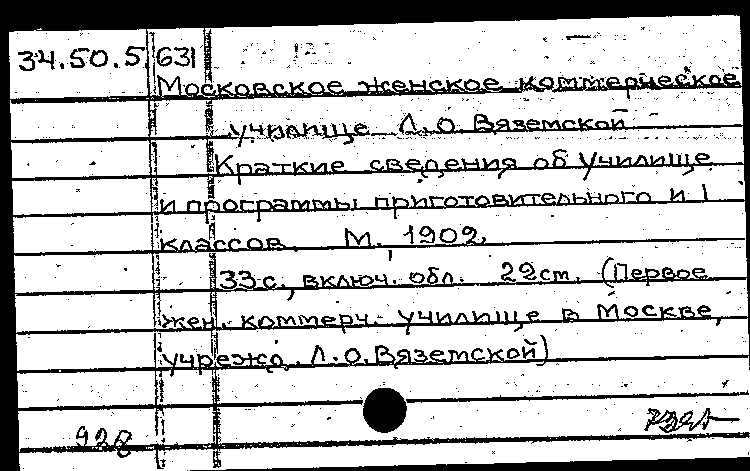 34.50.5.631
Московское женское коммерческое
училище Л.О. Вяземской
Краткие сведения об училище
и программы приготовительного и I
классов. М., 1902.
33 с., включ. обл. 22 cm. (Первое
жен. коммерч. училище в Москве,
учрежд. Л.О. Вяземской)
928